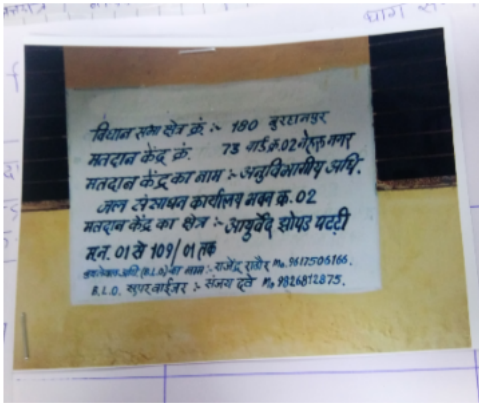 भाग सं
विधान सभा क्षेत्र क्रं. :- 180 बुरहानपुर
मतदान केंद्र क्रं. 73 वार्ड क्र.02 नेहरू नगर
मतदान केंद्र का नाम :- अनुविभागीय अधि.
जल संसाधन कार्यालय भवन क्र. 02
मतदान केंद्र का क्षेत्र :- आयुर्वेद झोपड पट्टी
म.न. 01 से 109/01 तक
(B.L.O) का नाम :- राजेंद्र राठौर Mo. 9617506166.
B.L.O. सुपरवाईजर :- संजय दवे Mo 9826812875.